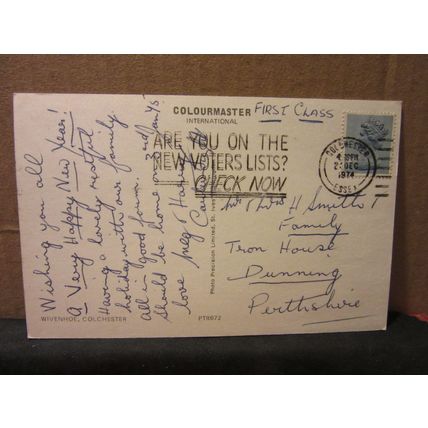 COLOURMASTER
INTERNATIONAL
FIRST CLASS
ARE YOU ON THE
NEW VOTERS LISTS?
CHECK NOW
COLCHESTER
DEC
1974
ESSEX
Wishing you all
A Very Happy New Year!
Having a lovely restful
holiday with our family
all in good form.
Should be home
love Meg
Mr & Mrs H Smith &
Family
Tron House,
Dunning
Perthshire
Photo Precision Limited, St. Ives
WIVENHOE, COLCHESTER
PT8672